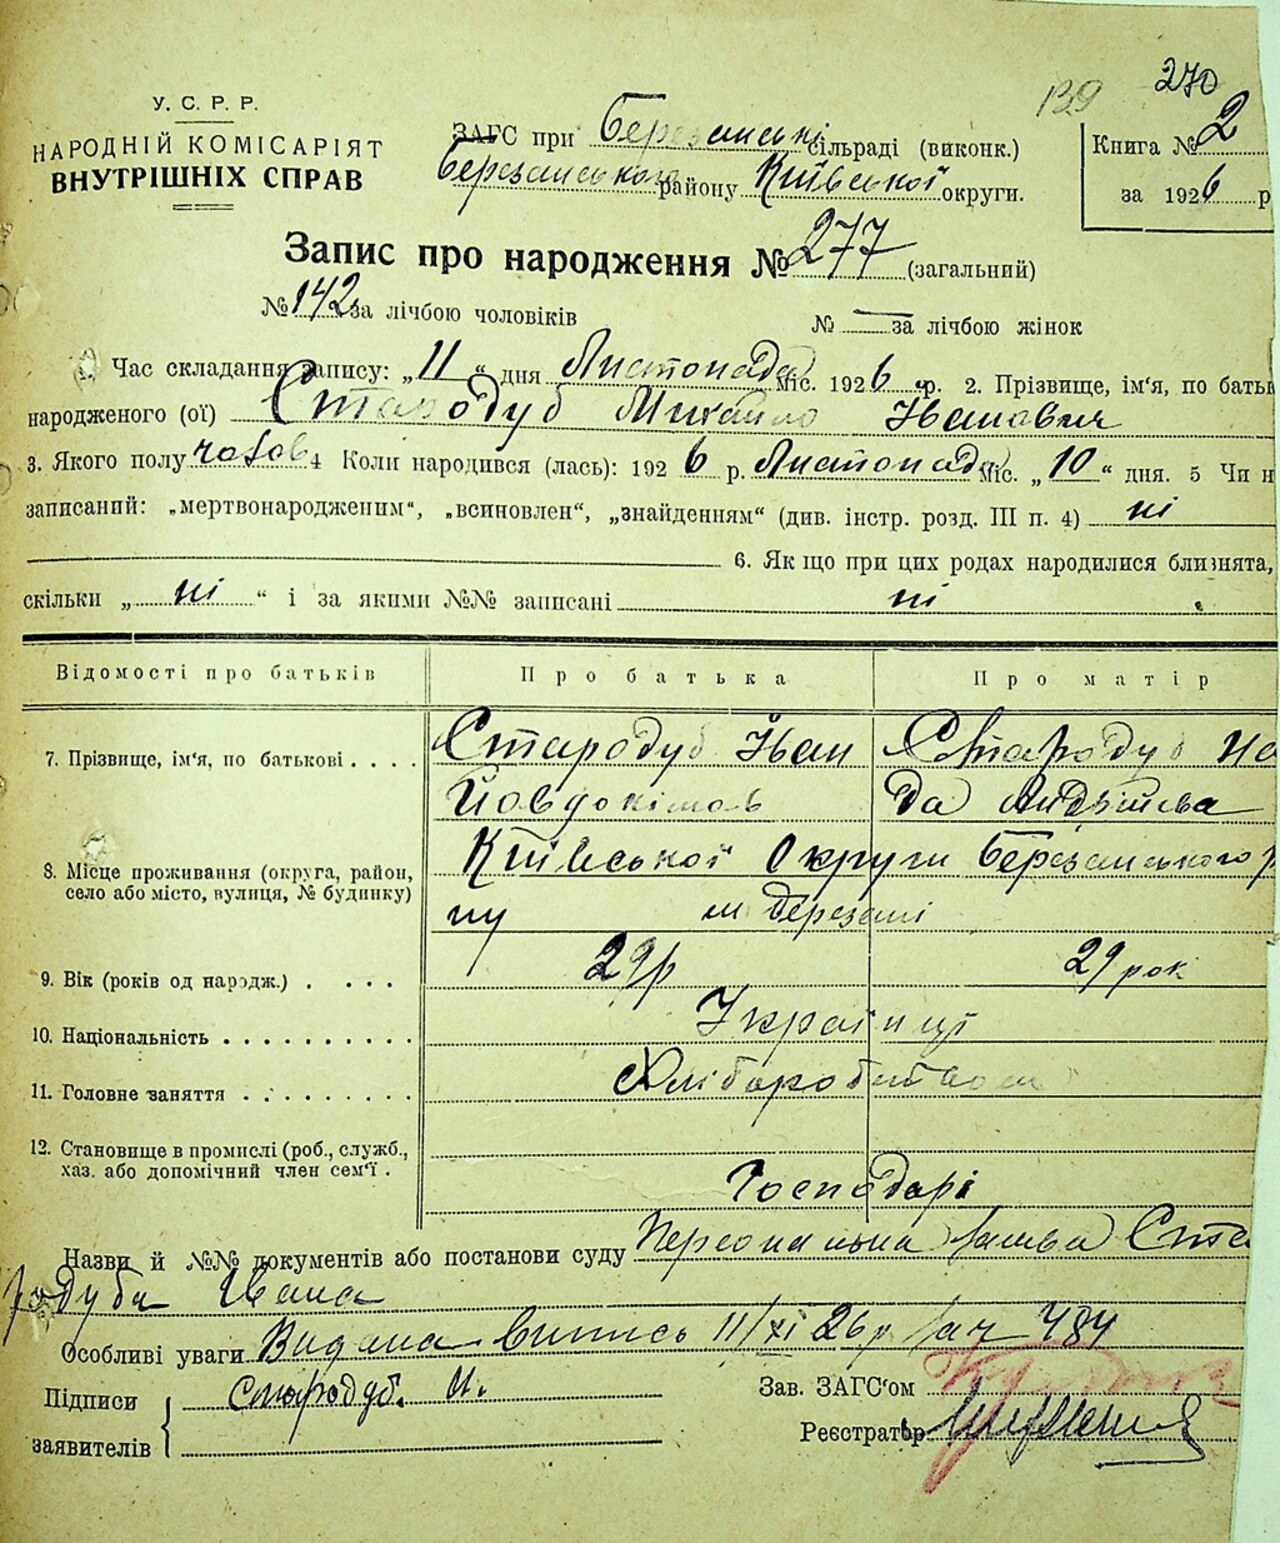 139 270
У. С. Р. Р.
НАРОДНІЙ КОМІСАРІЯТ
ВНУТРІШНІХ СПРАВ
ЗАГС при Березанські сільраді (виконк.)
Березанського району Київської округи.
Книга № 2
за 1926 р
Запис про народження № 277 (загальний)
№ 142 за лічбою чоловіків № — за лічбою жінок
1. Час складання запису: „11“ дня Листопада міс. 1926 р. 2. Прізвище, ім'я, по батьк
народженого (ої) Стародуб Михайло Іванович
3. Якого полу чолов 4 Коли народився (лась): 1926 р. Листопада міс. „10“ дня. 5 Чи н
записаний: „мертвонародженим“, „всиновлен“, „знайденням“ (див. інстр. розд. III п. 4) ні
6. Як що при цих родах народилися близнята,
скільки „ні“ і за якими №№ записані ні
Відомості про батьків Про батька Про матір
7. Прізвище, ім'я, по батькові . . . . Стародуб Іван Стародуб На
Йовдокімов да Андріївва
8. Місце проживання (округа, район, село або місто, вулиця, № будинку) Київської Округи Березанського р
ну м Березані
9. Вік (років од народж.) . . . . 29 р 29 рок
10. Національність . . . . . . . . . . Українці
11. Головне заняття . . . . . . . . . Хліборобством
12. Становище в промислі (роб., служб.,
хаз. або допомічний член сем'ї . Господарі
Назви й №№ документів або постанови суду Персональна заява Ста
родуба Івана
Особливі уваги Видана випись 11/XI 26 р за ч 484
Підписи Стародуб. И. Зав. ЗАГС'ом
заявителів Реєстратор